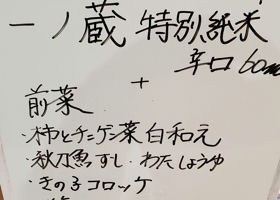 一ノ蔵 特別純米
辛口 60ml
+
前菜
・柿とチンゲン菜白和え
・秋刀魚すし・わたしょうゆ
・きの子コロッケ